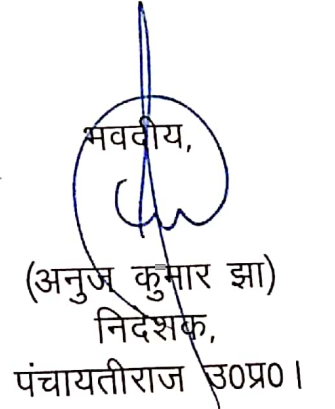 भवदीय,
(अनुज कुमार झा)
निदेशक,
पंचायतीराज उ०प्र०।